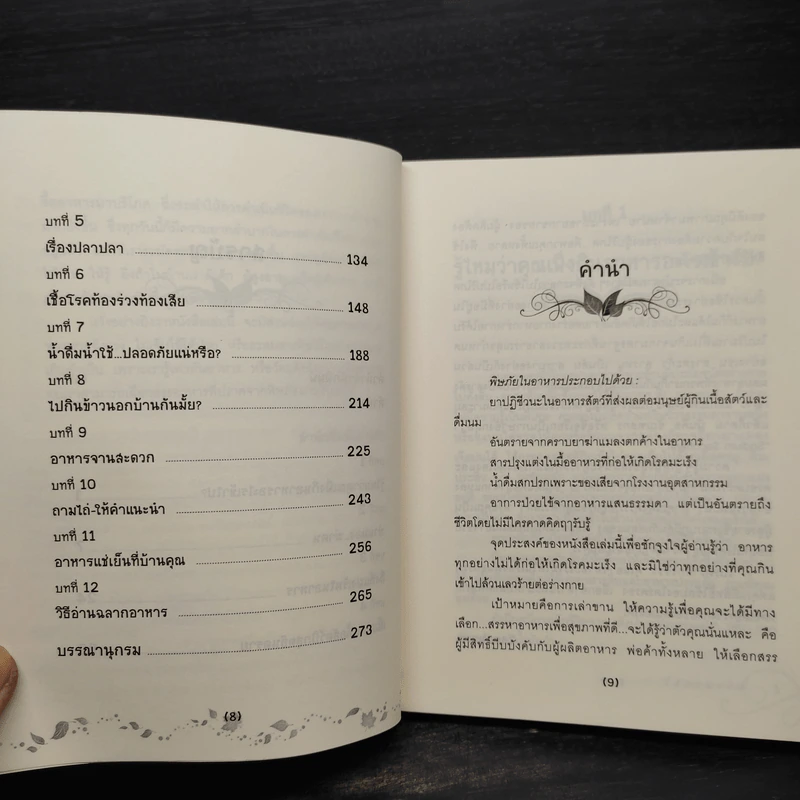 บทที่ 5
เรื่องปลาปลา 134
บทที่ 6
เชื้อโรคท้องร่วงท้องเสีย 148
บทที่ 7
น้ำดื่มน้ำใช้...ปลอดภัยแน่หรือ? 188
บทที่ 8
ไปกินข้าวนอกบ้านกันมั้ย? 214
บทที่ 9
อาหารจานสะดวก 225
บทที่ 10
ถามไถ่-ให้คำแนะนำ 243
บทที่ 11
อาหารแช่เย็นที่บ้านคุณ 256
บทที่ 12
วิธีอ่านฉลากอาหาร 265
บรรณานุกรม 273
(8)
คำนำ
พิษภัยในอาหารประกอบไปด้วย :
ยาปฏิชีวนะในอาหารสัตว์ที่ส่งผลต่อมนุษย์ผู้กินเนื้อสัตว์และ
ดื่มนม
อันตรายจากคราบยาฆ่าแมลงตกค้างในอาหาร
สารปรุงแต่งในมื้ออาหารที่ก่อให้เกิดโรคมะเร็ง
น้ำดื่มสกปรกเพราะของเสียจากโรงงานอุตสาหกรรม
อาการป่วยไข้จากอาหารแสนธรรมดา แต่เป็นอันตรายถึง
ชีวิตโดยไม่มีใครคาดคิดฤๅรับรู้
จุดประสงค์ของหนังสือเล่มนี้เพื่อชักจูงใจผู้อ่านรู้ว่า อาหาร
ทุกอย่างไม่ได้ก่อให้เกิดโรคมะเร็ง และมิใช่ว่าทุกอย่างที่คุณกิน
เข้าไปล้วนเลวร้ายต่อร่างกาย
เป้าหมายคือการเล่าขาน ให้ความรู้เพื่อคุณจะได้มีทาง
เลือก...สรรหาอาหารเพื่อสุขภาพที่ดี...จะได้รู้ว่าตัวคุณนั่นแหละ คือ
ผู้มีสิทธิ์บีบบังคับกับผู้ผลิตอาหาร พ่อค้าทั้งหลาย ให้เลือกสรร
(9)